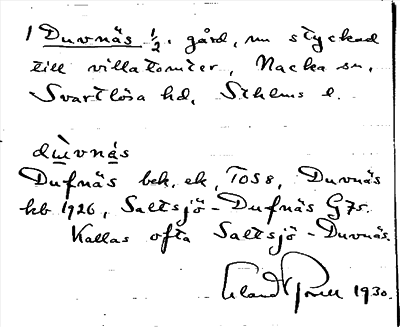 1 Duvnäs 1/2. gård, nu styckad
till villatomter, Nacka sn,
Svartlösa hd, Sthlms l.
dùvnás
Dufnäs bek. ek, TOS8, Duvnäs
kb 1926, Saltsjö-Dufnäs G7r.
Kallas ofta Saltsjö-Duvnäs.
Erland 1930.